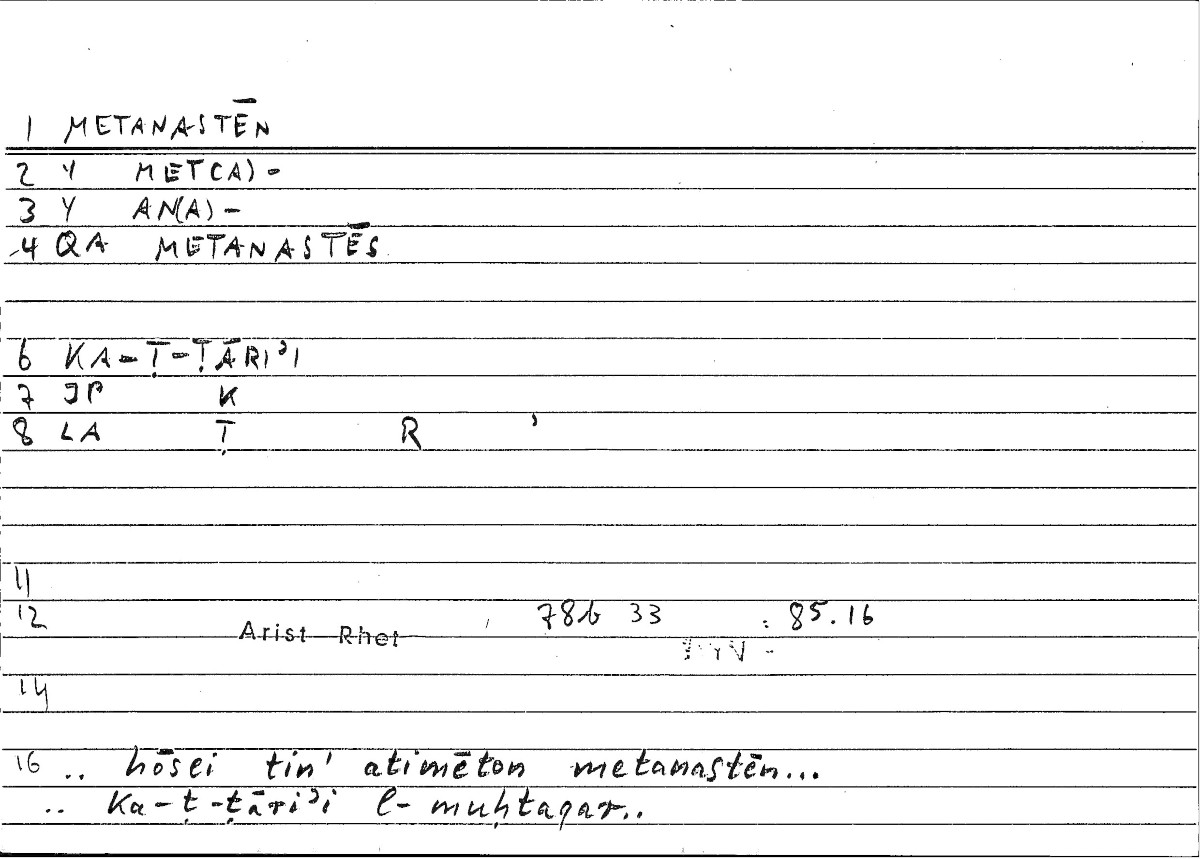 1 METANASTĒN
2 Y MET(A)-
3 Y AN(A)-
4 QA METANASTĒS
6 KA-Ṭ-ṬĀRIʾI
7 JP K
8 LA Ṭ R ʾ
11
12 Arist Rhet , 78b 33 : 85.16
14
16 .. hōsei tin' atimēton metanastēn...
.. Ka-ṭ-ṭāriʾi l-muḥtaqar..